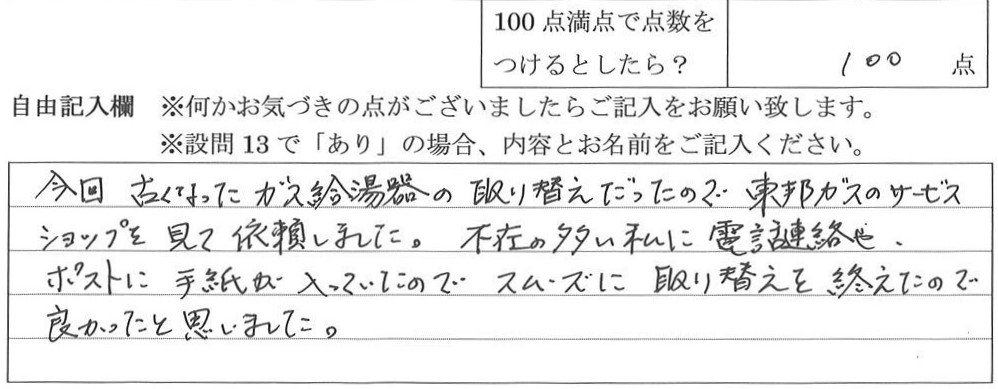 100点満点で点数を
つけるとしたら？
100 点
自由記入欄 ※何かお気づきの点がございましたらご記入をお願い致します。
※設問13で「あり」の場合、内容とお名前をご記入ください。
今回 古くなった ガス給湯器の 取り替えだったので 東邦ガスのサービス
ショップを 見て 依頼しました。 不在の多い私に 電話連絡や、
ポストに 手紙が 入っていたので スムーズに 取り替えを 終えたので
良かったと思いました。